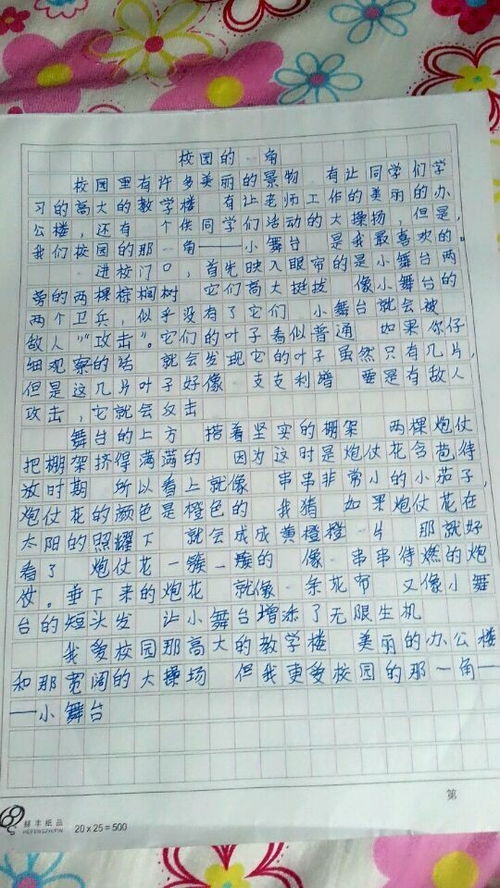 校园的一角
校园里有许多美丽的景物 有让同学们学
习的高大的教学楼 有让老师工作的美丽的办
公楼，还有一个供同学们活动的大操场，但是，
我们校园的那一角——小舞台 是我最喜欢的。
一进校门口，首先映入眼帘的是小舞台两
旁的两棵棕榈树 它们高大挺拔 像小舞台的
两个卫兵，似乎没有了它们 小舞台就会被
敌人"攻击"。它们的叶子看似普通 如果你仔
细观察的话 就会发现它的叶子虽然只有几片，
但是这几片叶子好像一支支利箭 要是有敌人
攻击，它就会反击
舞台的上方 搭着坚实的棚架 两棵炮仗
把棚架挤得满满的 因为这时是炮仗花含苞待
放时期 所以看上就像一串串非常小的小茄子，
炮仗花的颜色是橙色的 我猜 如果炮仗花在
太阳的照耀下 就会成成黄橙橙一片 那就好
看了 炮仗花一簇一簇的 像一串串待燃的炮
仗。垂下来的炮花 就像一条花布 又像小舞
台的短头发 让小舞台增添了无限生机
我爱校园那高大的教学楼 美丽的办公楼
和那宽阔的大操场 但我更爱校园的那一角—
—小舞台
第
赫丰纸品
HEFENGZHIPIN
20x25=500